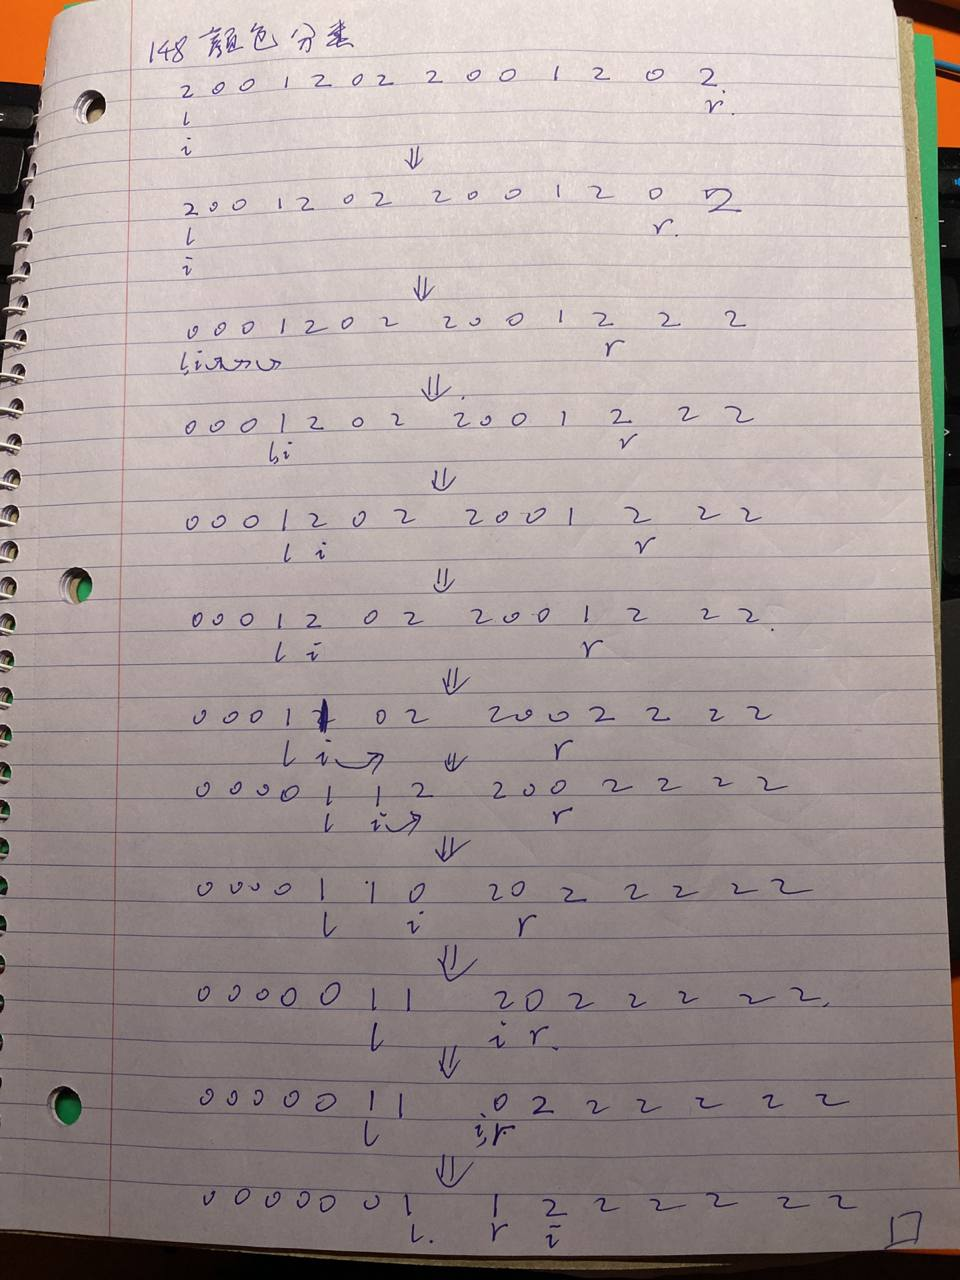 148 颜色分类
2 0 0 1 2 0 2 2 0 0 1 2 0 2.
l r.
i
⇓
2 0 0 1 2 0 2 2 0 0 1 2 0 2
l r.
i
⇓
0 0 0 1 2 0 2 2 0 0 1 2 2 2
l,i r
⇓.
0 0 0 1 2 0 2 2 0 0 1 2 2 2
l,i r
⇓
0 0 0 1 2 0 2 2 0 0 1 2 2 2
l i r
⇓
0 0 0 1 2 0 2 2 0 0 1 2 2 2.
l i r
⇓
0 0 0 1 1 0 2 2 0 0 2 2 2 2
l i r
⇓
0 0 0 0 1 1 2 2 0 0 2 2 2 2
l i r
⇓
0 0 0 0 1 1 0 2 0 2 2 2 2 2
l i r
⇓
0 0 0 0 0 1 1 2 0 2 2 2 2 2.
l i r.
⇓
0 0 0 0 0 1 1 0 2 2 2 2 2 2
l i,r
⇓
0 0 0 0 0 0 1 1 2 2 2 2 2 2
l. r i □